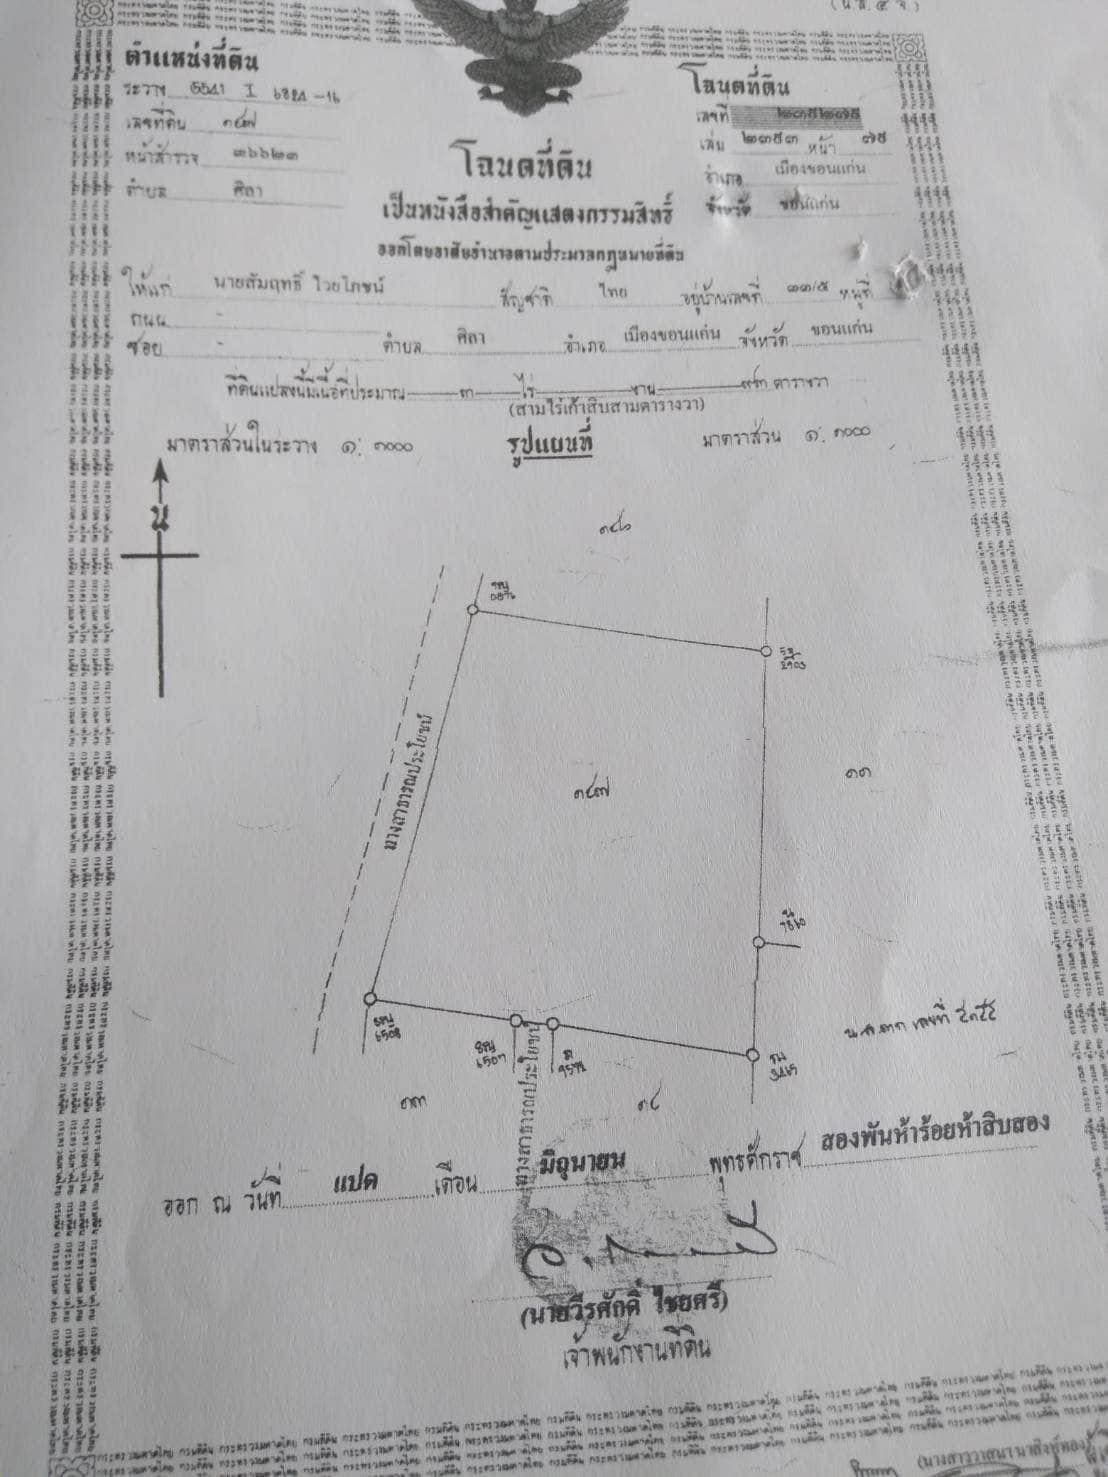 (น.ส.๔ จ.)
ตำแหน่งที่ดิน
ระวาง 5541 I 6824-16
เลขที่ดิน ๑๔๗
หน้าสำรวจ ๓๖๖๒๓
ตำบล ศิลา
โฉนดที่ดิน
เลขที่ ๒๓๕๒๗๕
เล่ม ๒๓๕๓ หน้า ๗๕
อำเภอ เมืองขอนแก่น
จังหวัด ขอนแก่น
โฉนดที่ดิน
เป็นหนังสือสำคัญแสดงกรรมสิทธิ์
ออกโดยอาศัยอำนาจตามประมวลกฎหมายที่ดิน
ให้แก่ นายสัมฤทธิ์ ไวยโภชน์ สัญชาติ ไทย อยู่บ้านเลขที่ ๓๓/๕ หมู่ที่
ถนน -
ซอย - ตำบล ศิลา อำเภอ เมืองขอนแก่น จังหวัด ขอนแก่น
ที่ดินแปลงนี้มีเนื้อที่ประมาณ ๓ ไร่ งาน ๙๓ ตารางวา
(สามไร่เก้าสิบสามตารางวา)
มาตราส่วนในระวาง ๑: ๑๐๐๐ รูปแผนที่ มาตราส่วน ๑: ๑๐๐๐
น
๑๔๖
ทางสาธารณประโยชน์
๑๔๗
๑๑
6508
6507
3465
ทางสาธารณประโยชน์
๑๓
๑๔
ออก ณ วันที่ แปด เดือน มิถุนายน พุทธศักราช สองพันห้าร้อยห้าสิบสอง
(นายวีรศักดิ์ ไชยศรี)
เจ้าพนักงานที่ดิน